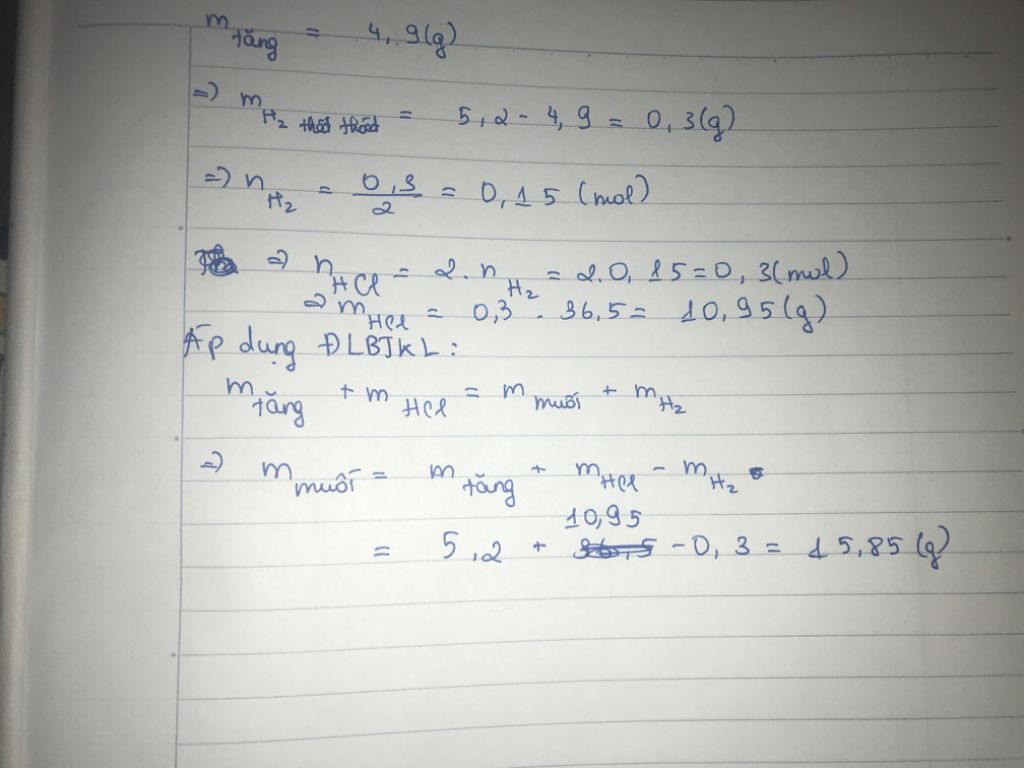 m tăng = 4,9(g)
=> m H2 = 5,2 - 4,9 = 0,3(g)
=> n H2 = 0,3/2 = 0,15 (mol)
=> n HCl = 2. n H2 = 2.0,15=0,3(mol)
=> m HCl = 0,3 . 36,5= 10,95(g)
Áp dụng ĐLBTKL:
m tăng + m HCl = m muối + m H2
=> m muối = m tăng + m HCl - m H2
= 5,2 + 10,95 - 0,3 = 15,85(g)